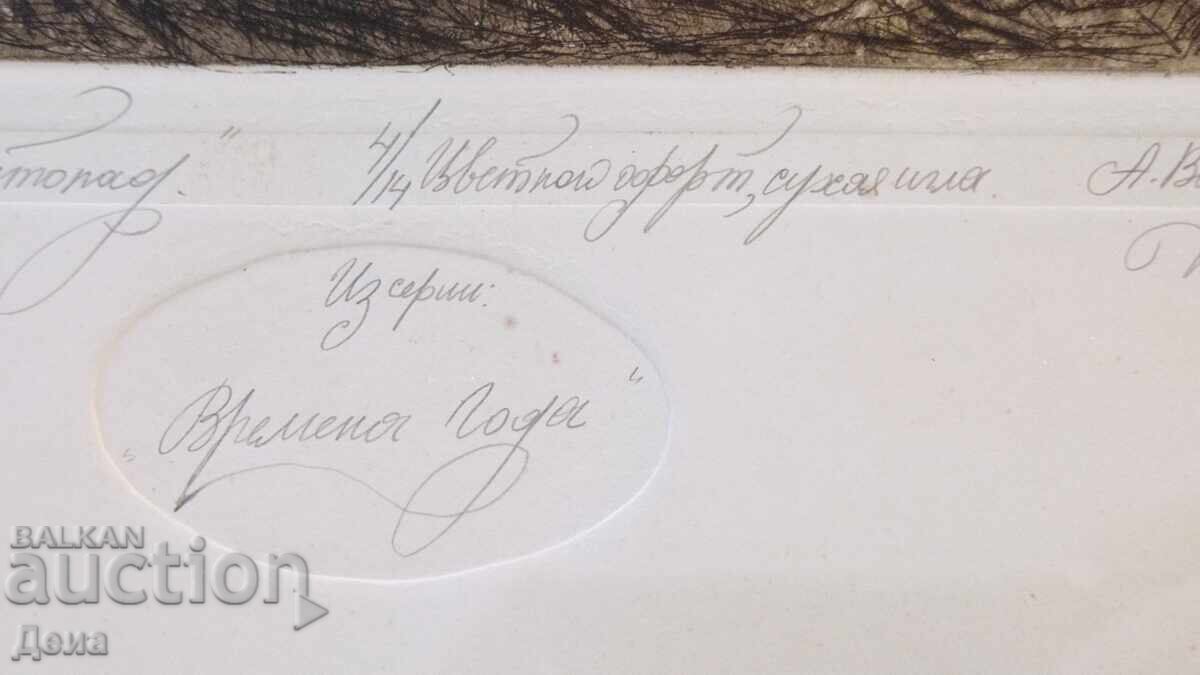 топад." 4/14 Цветной офорт, сухая игла. А. В
Из серии:
"Времена Года"
BALKAN
auction
Деиа